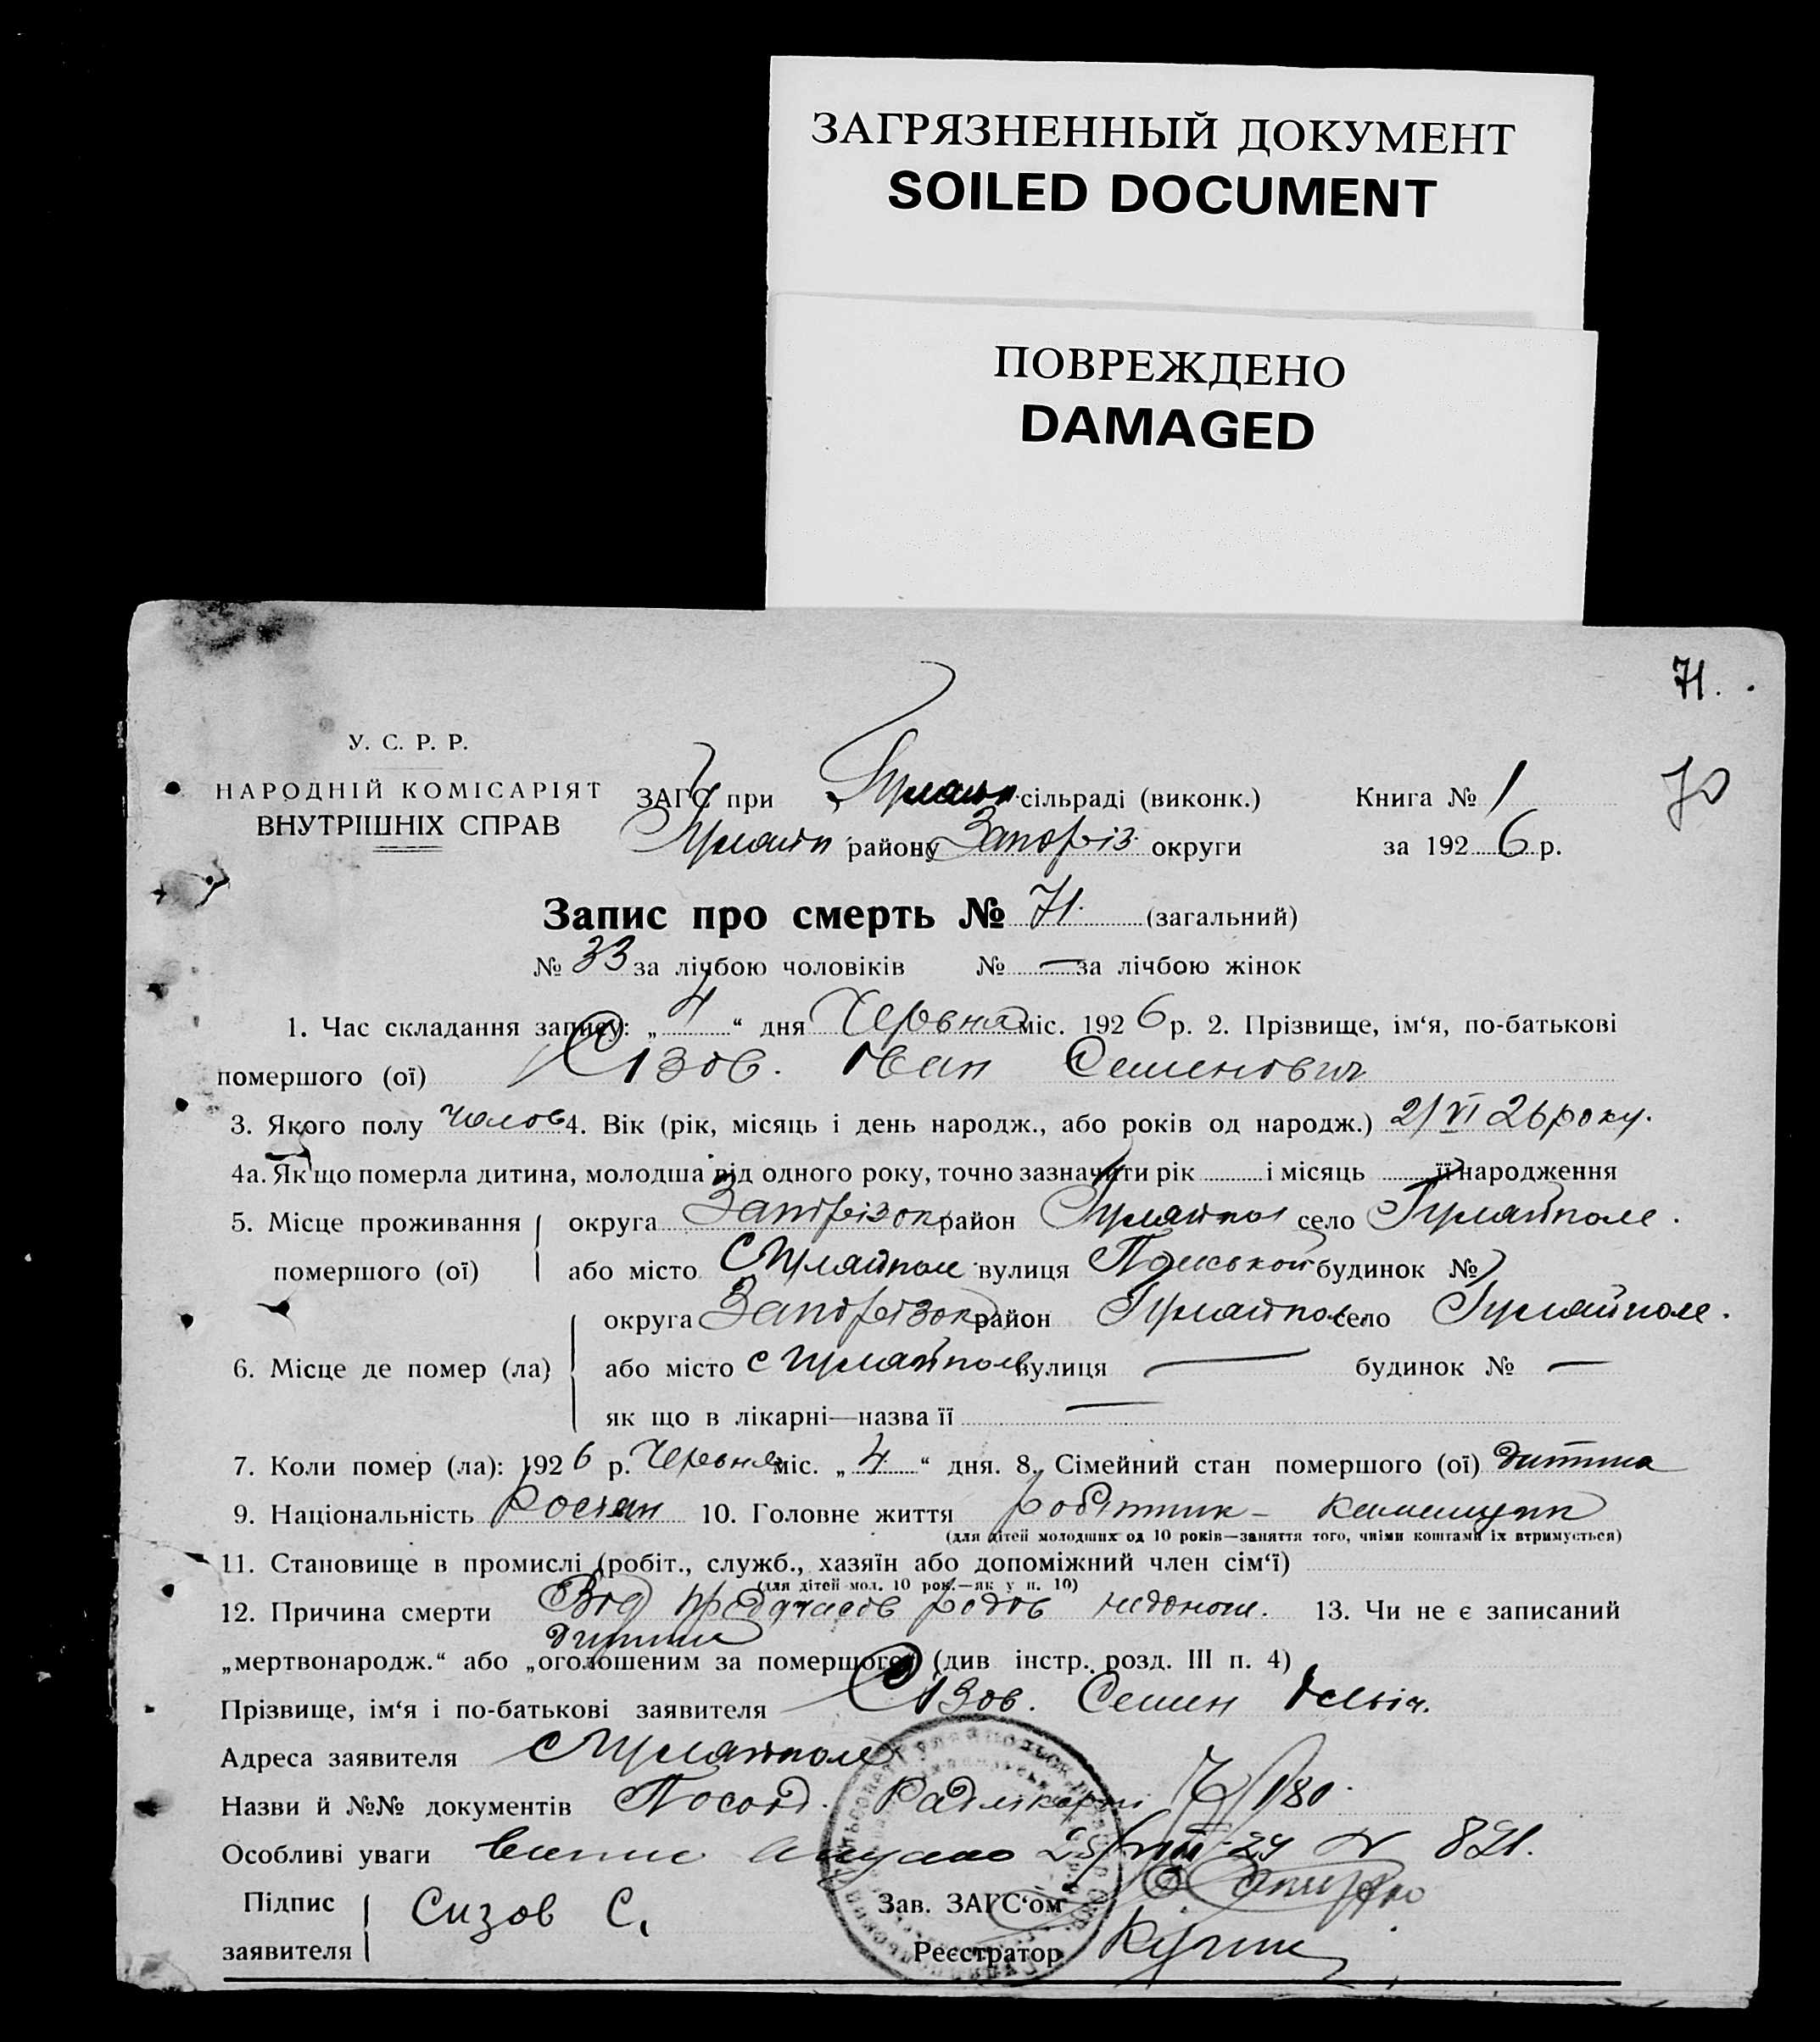 ЗАГРЯЗНЕННЫЙ ДОКУМЕНТ
SOILED DOCUMENT
ПОВРЕЖДЕНО
DAMAGED
71.
У. С. Р. Р.
НАРОДНІЙ КОМІСАРІЯТ
ВНУТРІШНІХ СПРАВ
ЗАГС при Гуляй сільраді (виконк.) Книга № 1
70
Гуляйп району Запоріз округи за 1926 р.
Запис про смерть № 71. (загальний)
№ 33 за лічбою чоловіків № — за лічбою жінок
1. Час складання запису: „4“ дня Червня міс. 1926 р. 2. Прізвище, ім‘я, по-батькові
помершого (ої) Сізов. Іван Семенович
3. Якого полу Чолов 4. Вік (рік, місяць і день народж., або років од народж.) 2/VI 26 року.
4а. Як що померла дитина, молодша від одного року, точно зазначити рік і місяць її народження
5. Місце проживання округа Запорізок район Гуляйпол село Гуляйполе.
помершого (ої) або місто с Гуляйполе вулиця будинок №
округа Запорізок район Гуляйпол село Гуляйполе.
6. Місце де помер (ла) або місто с Гуляйполе вулиця — будинок № —
як що в лікарні—назва її —
7. Коли помер (ла): 1926 р. Червня міс. „4“ дня. 8. Сімейний стан помершого (ої) дитина
9. Національність Росіян 10. Головне життя робітник -
(для дітей молодших од 10 років—заняття того, чиїми коштами їх втримується)
11. Становище в промислі (робіт., служб., хазяїн або допоміжний член сім‘ї)
(для дітей мол. 10 рок.—як у п. 10)
12. Причина смерти Від предчасов родов недонош. 13. Чи не є записаний
дитина
„мертвонародж.“ або „оголошеним за помершого“ (див інстр. розд. III п. 4)
Прізвище, ім‘я і по-батькові заявителя Сізов. Семен
Адреса заявителя с Гуляйполе
Назви й №№ документів Посвід. Райлікарні 180.
Особливі уваги 25/VIII-29 № 821.
Підпис
заявителя Сизов С.
Зав. ЗАГС‘ом
Реєстратор